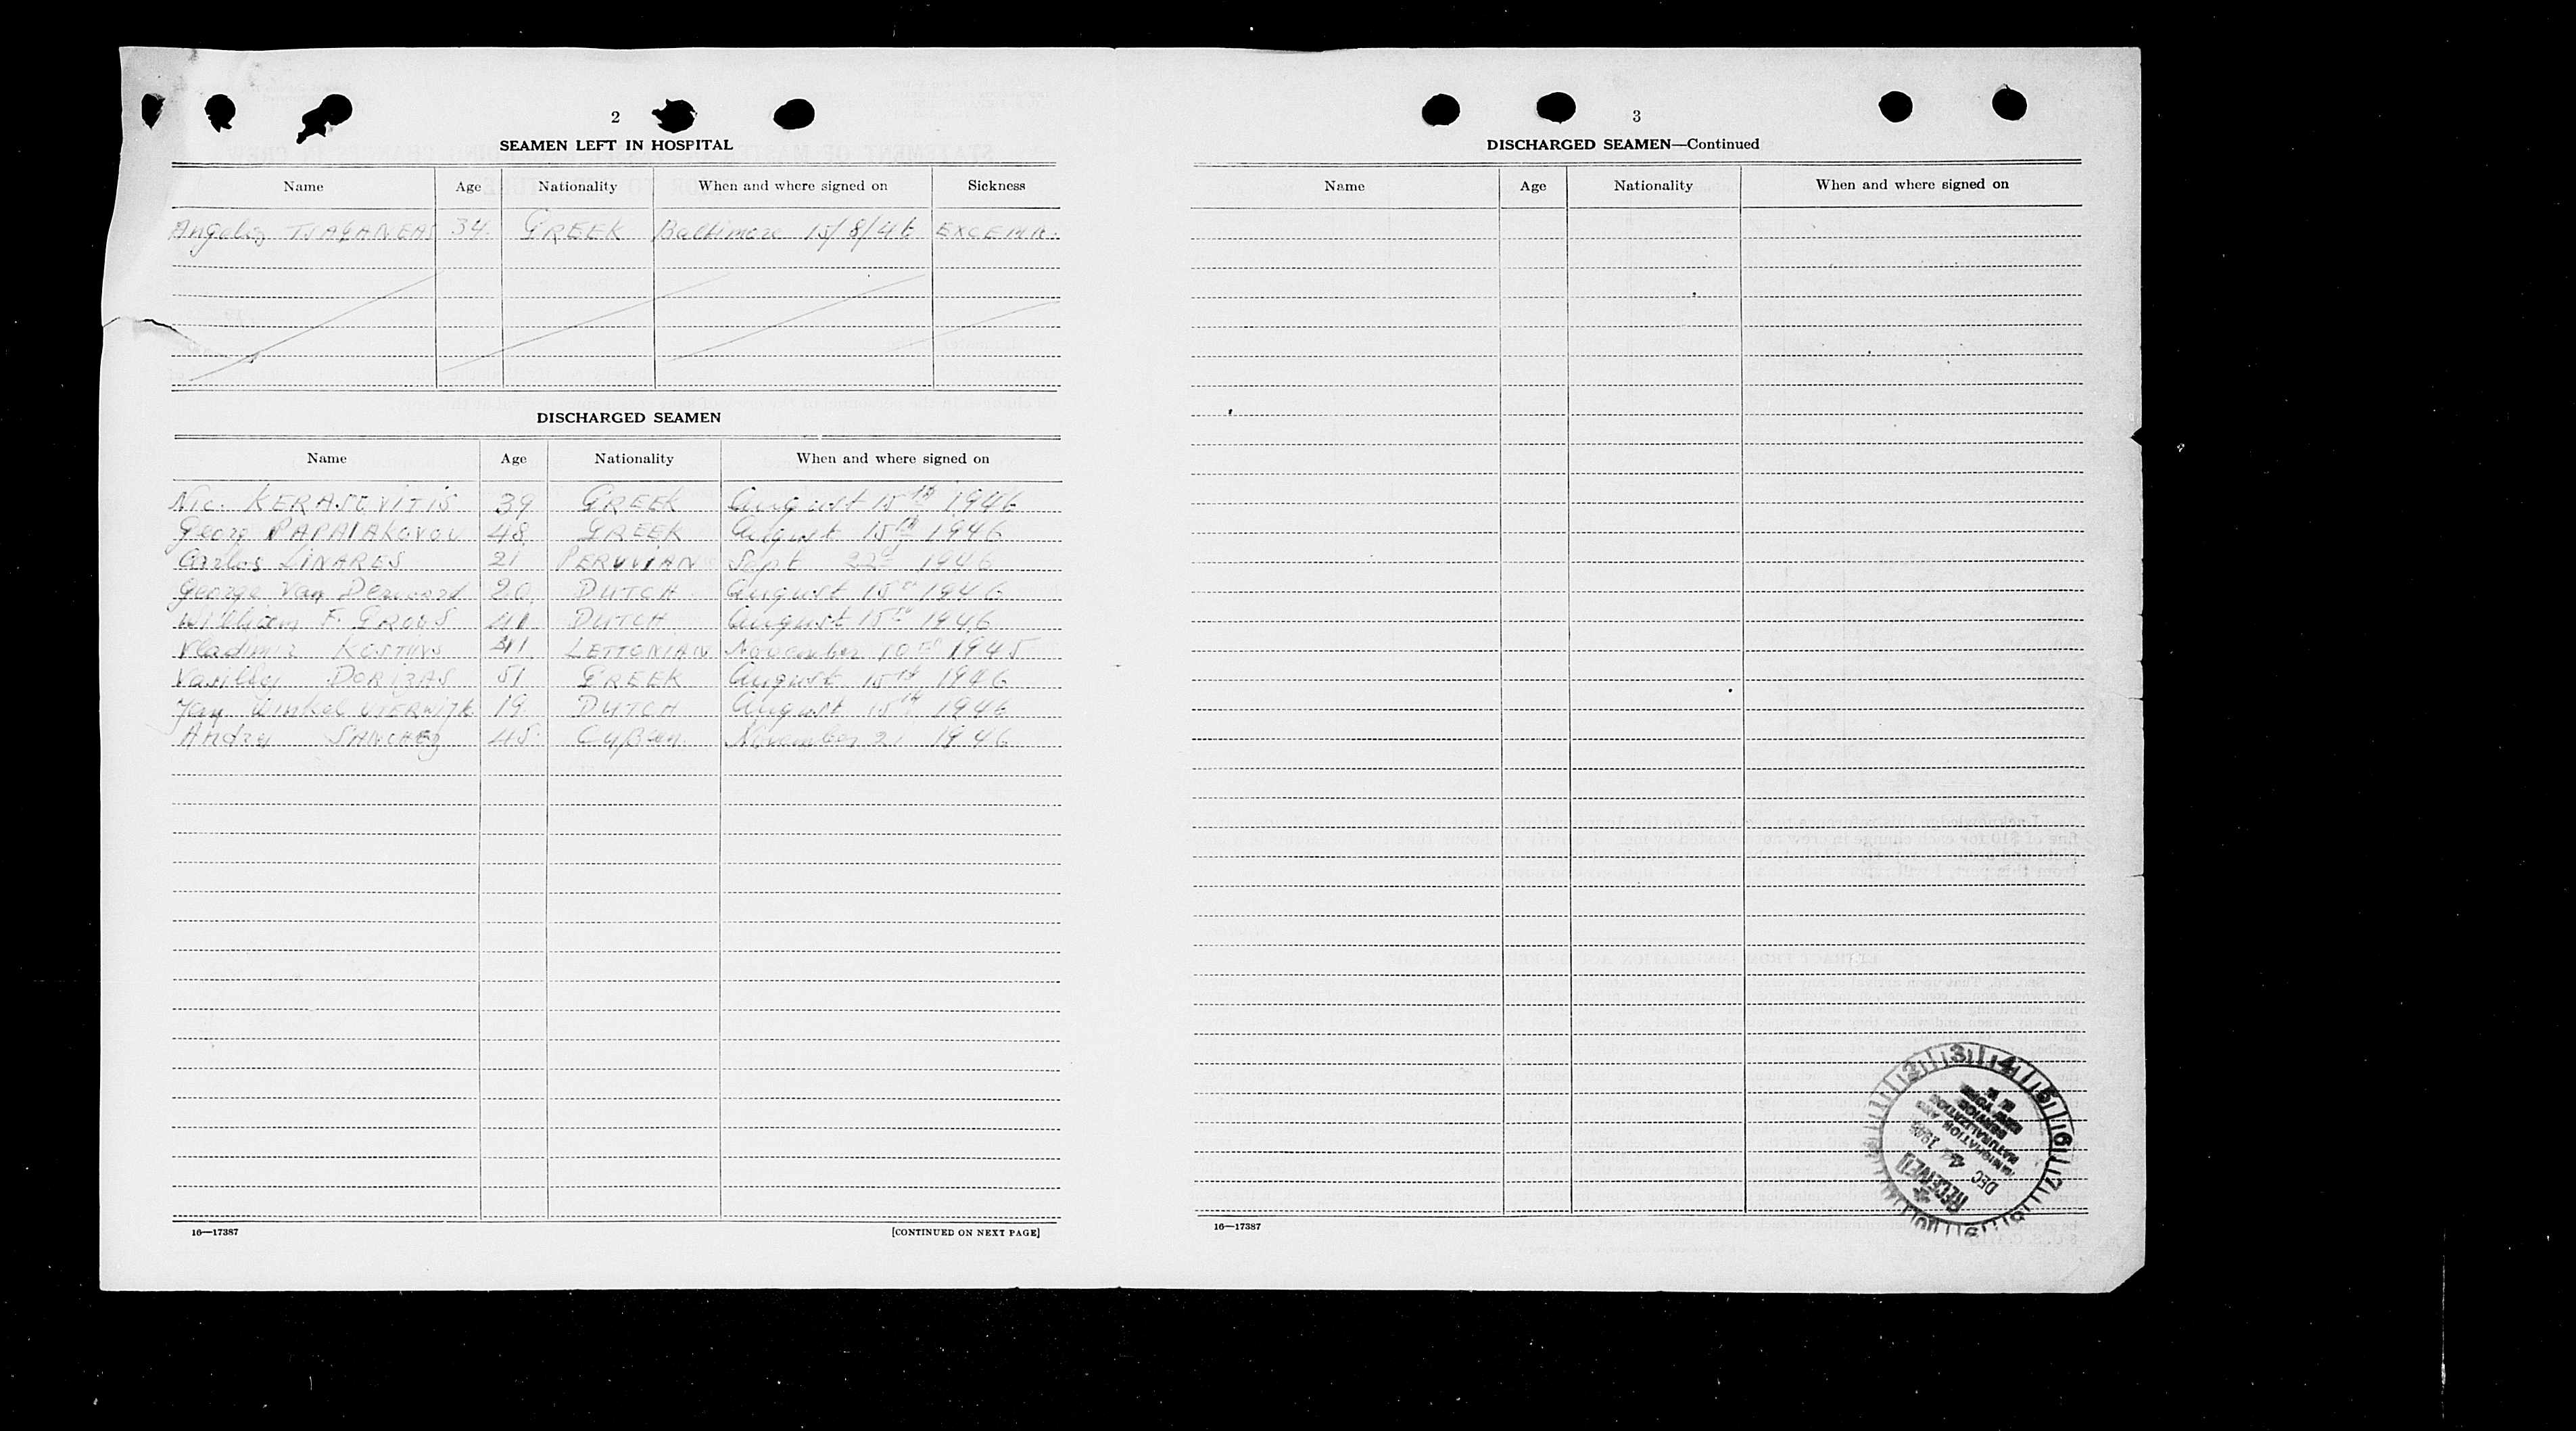 2
SEAMEN LEFT IN HOSPITAL
Name Age Nationality When and where signed on Sickness
Angelos 34 GREEK Baltimore 15/8/46 EXCEMA.
DISCHARGED SEAMEN
Name Age Nationality When and where signed on
Nic. 39 GREEK August 15th 1946
Georg PAPAIAKOVOU 48 GREEK August 15th 1946
Carlos LINARES 21 PERUVIAN Sept 22d 1946
George Van 20 DUTCH August 15th 1946
William F. 41 DUTCH August 15th 1946
Vladimir 41 LETTONIAN November 10th 1945
DORIZAS 51 GREEK August 15th 1946
Winkel 19 DUTCH August 15th 1946
SANCHEZ 45 Cuban November 1946
16—17387 [CONTINUED ON NEXT PAGE]
3
DISCHARGED SEAMEN—Continued
Name Age Nationality When and where signed on
RECEIVED
DEC 1946
IMMIGRATION AND
NATURALIZATION
SERVICE
16—17387